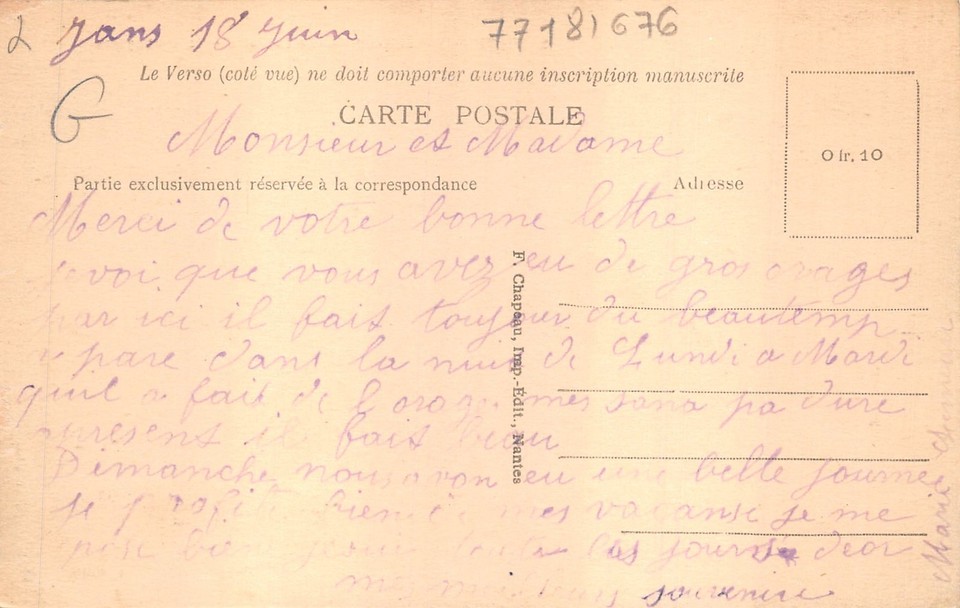 2 Jans 18 Juin 77181676
Le Verso (coté vue) ne doit comporter aucune inscription manuscrite
G
CARTE POSTALE
Monsieur et Madame
Partie exclusivement réservée à la correspondance Adresse
0 fr. 10
Merci de votre bonne lettre
voi que vous avez eu de gros orages
par ici il fait toujour du beautemp
dans la nuit de Lundi a Mardi
quil a fait de l orage mes sona pa dure
apresent il fait beau
F. Chapeau, Imp.-Édit., Nantes
Dimanche nous avon eu une belle journee
je profite bien mes vacanse je me
les journ deor
mes meilleurs souvenirs
Marie